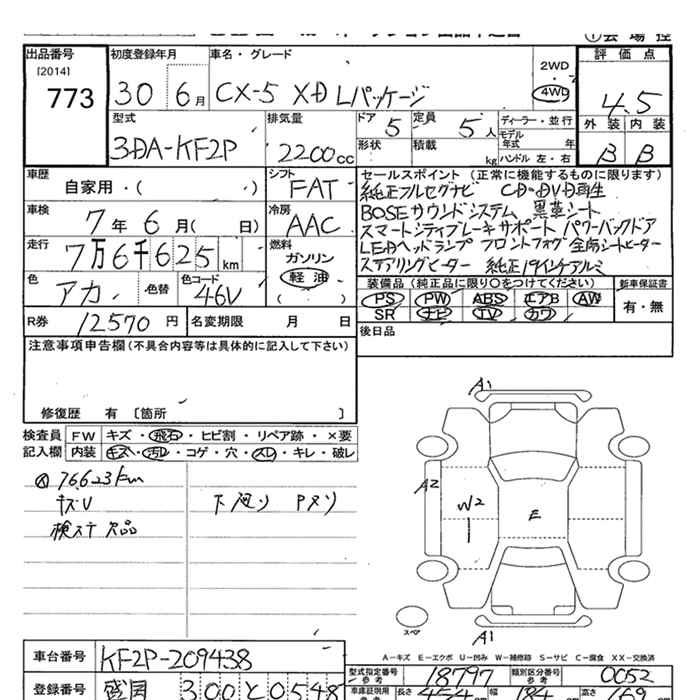 出品番号 初度登録年月 車名・グレード 2WD 評価点
[2014]
773 30 6月 CX-5 XD Lパッケージ 4WD 4.5
型式 排気量 ドア 5 定員 5人 ディーラー・並行 外装 内装
3DA-KF2P 2200cc 形状 積載 kg モデル年式 年式 ハンドル 左・右 B B
車歴 自家用・( ) シフト FAT セールスポイント(正常に機能するものに限ります)
純正フルセグナビ CD・DVD再生
車検 7年6月( 日) 冷房 AAC BOSEサウンドシステム 黒革シート
スマートシティブレーキサポート パワーバックドア
走行 7万6千625km 燃料 ガソリン 軽油 LEDヘッドランプ フロントフォグ 全席シートヒーター
ステアリングヒーター 純正19インチアルミ
色 アカ 色替 色コード 46V 装備品(純正品に限り○をつけてください) 新車保証書
PS PW ABS エアB AW 有・無
R券 12570円 名変期限 月 日 SR ナビ TV カワ
後日品
注意事項申告欄(不具合内容等は具体的に記入して下さい)
修復歴 有 〔箇所 〕
検査員 FW キズ・飛石・ヒビ割・リペア跡・×要
記入欄 内装 キズ・汚レ・コゲ・穴・スレ・キレ・破レ
76,623km
キズV 下回り Pメリ
検ステ欠品
A1
A2
W2
E
スペア
A1
A-キズ E-エクボ U-凹み W-補修跡 S-サビ C-腐食 XX-交換済
車台番号 KF2P-209438
型式指定番号 参考 18797 類別区分番号 参考 0052
登録番号 300 0548 車庫証明用 参考 長さ 454 幅 184 高さ 169